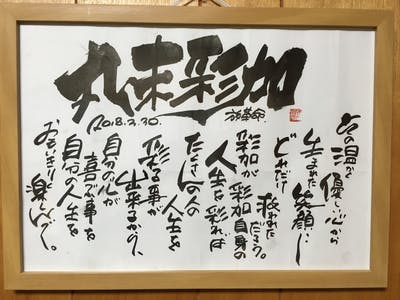 丸末彩加
2018.3.30.
その温かで優しい心から
生まれた笑顔に
どれだけ
救われただろう。
彩加が彩加自身の
人生を彩れば
たくさんの人の
人生を
彩る事が
出来るから、
自分の心が
喜ぶ事を
自分の人生を
おもいきり楽しんでこ。